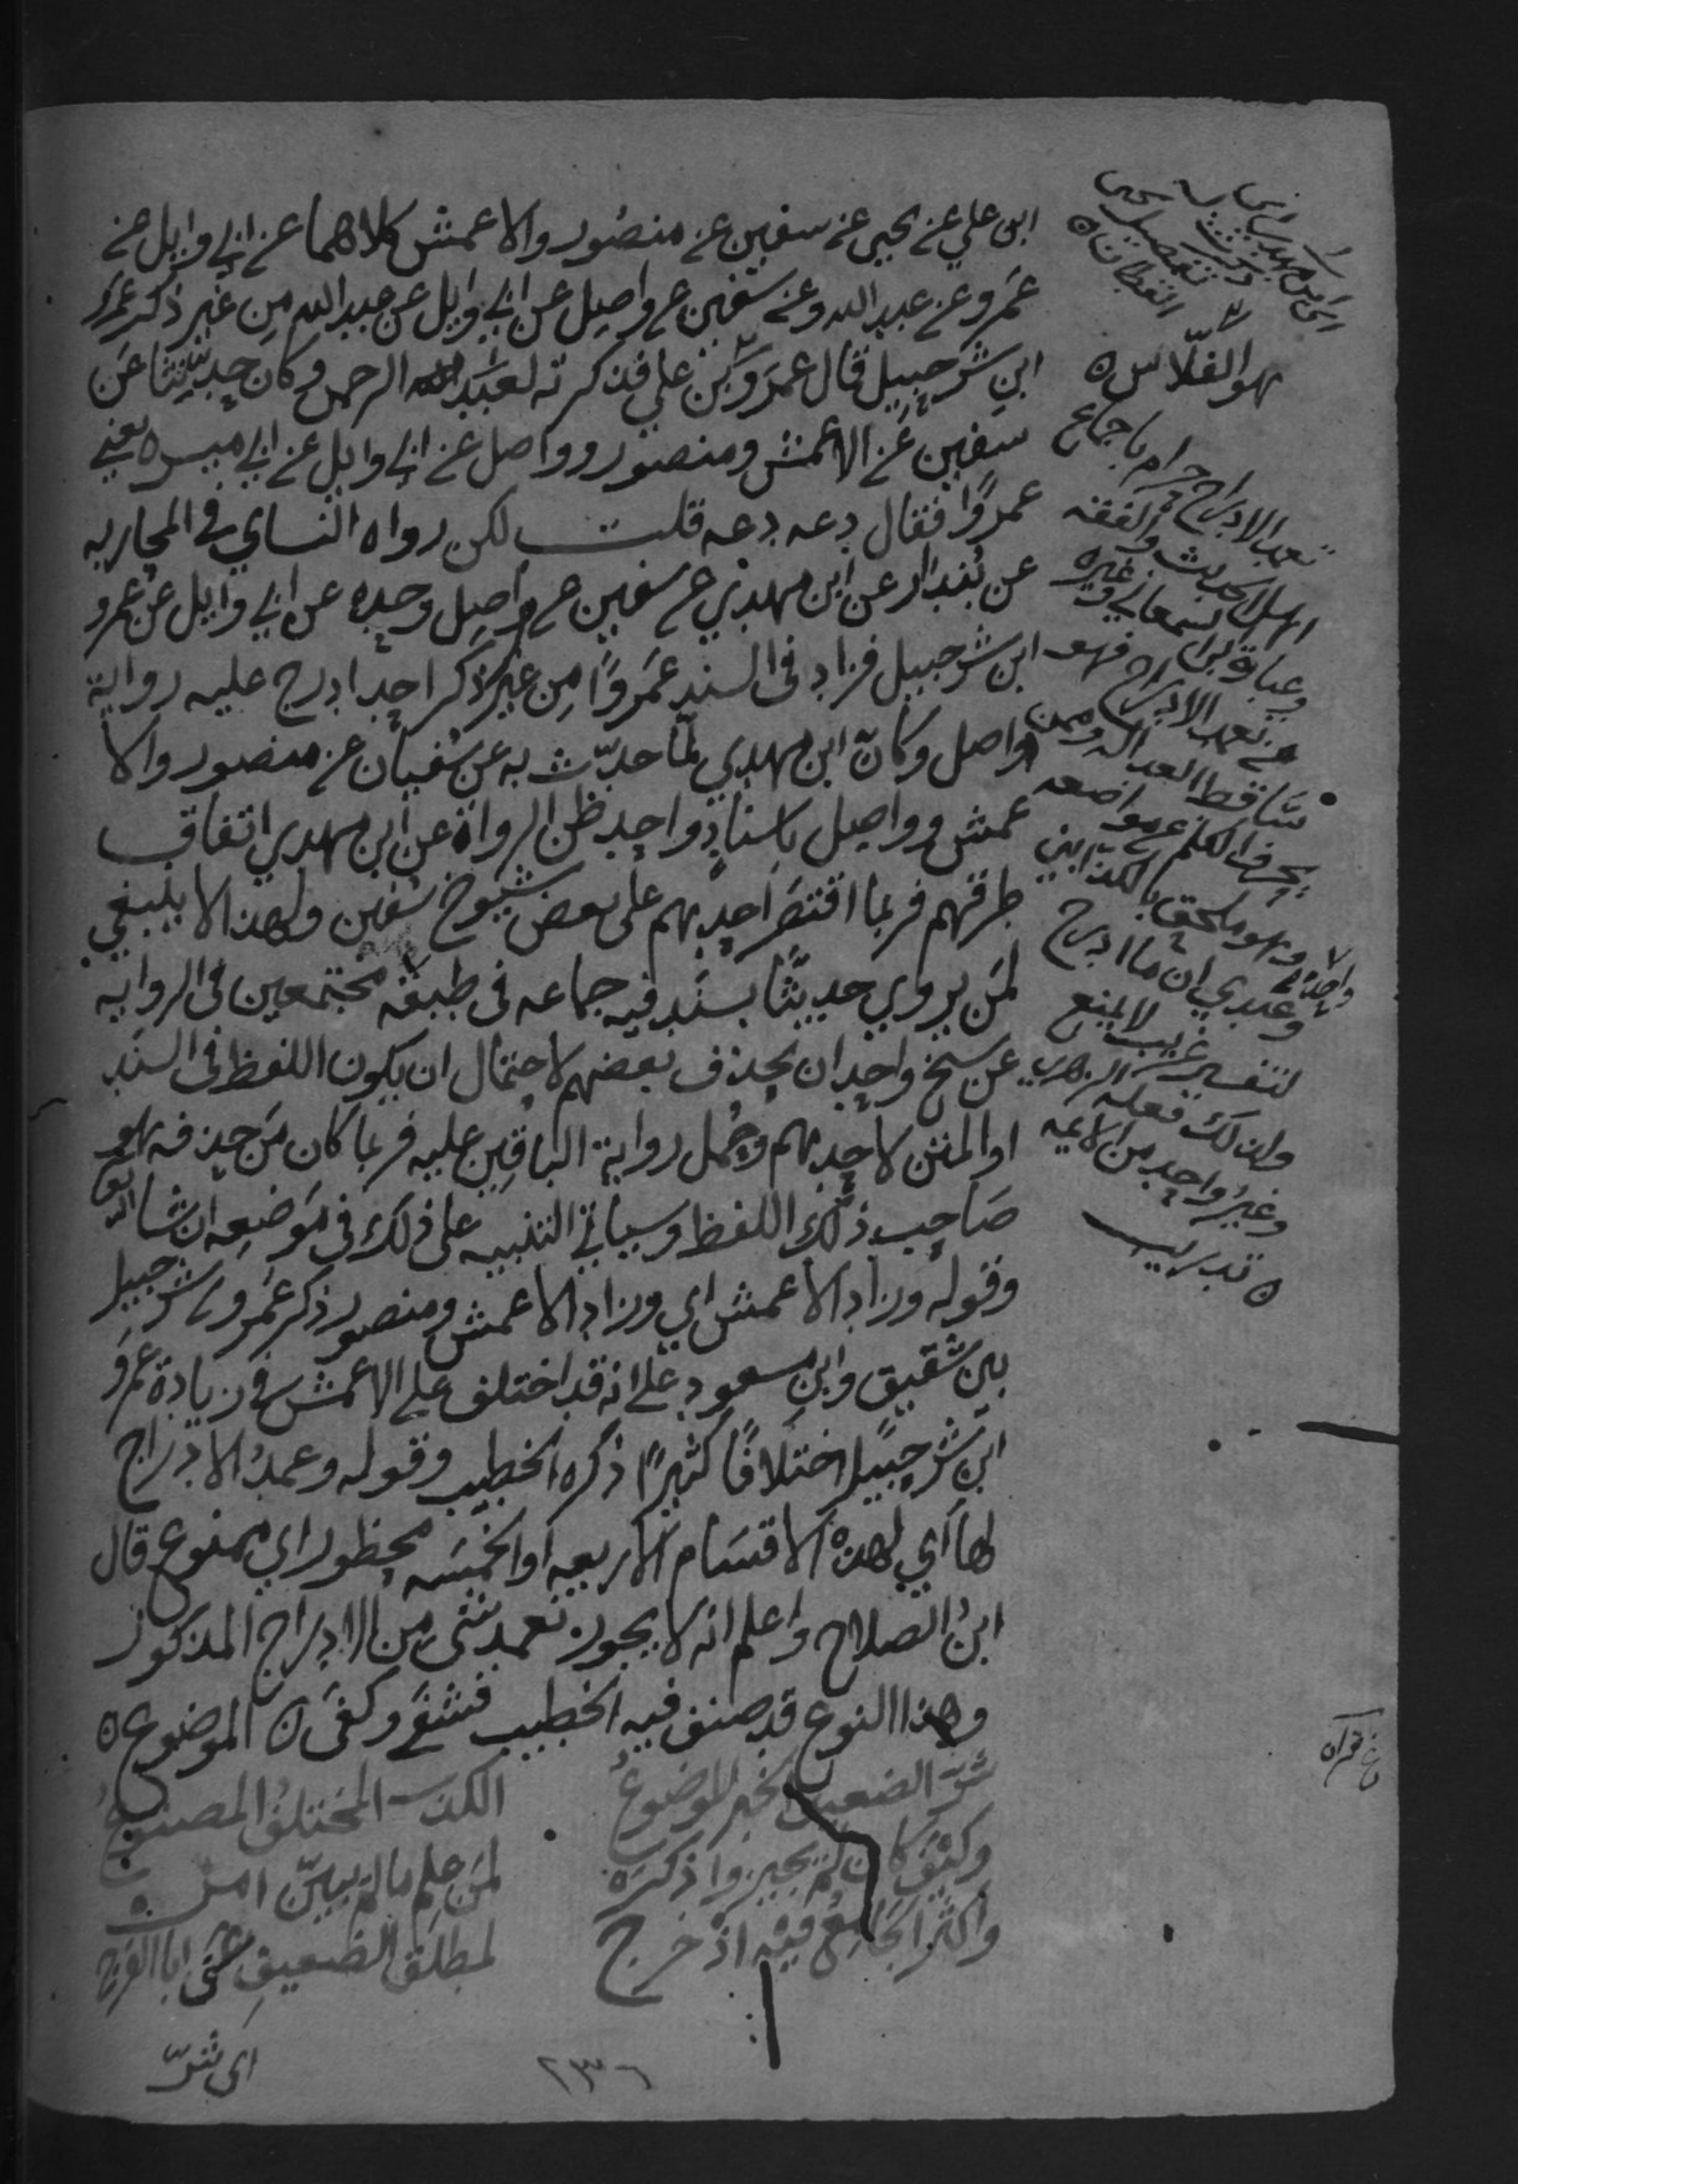 ابن علي عن يحيى عن سفين عن منصور والاعمش كلاهما عن ابي وايل عن
عمرو عن عبد الله وعن سفين عن واصل عن ابي وايل عن عبد الله من غير ذكر عمرو
ابن شرحبيل قال عمرو بن علي فذكرته لعبد الرحمن وكان حدثنا عن
سفين عن الاعمش ومنصور وواصل عن ابي وايل عن ابي ميسره يعني
عمروًا فقال دعه دعه قلت لكن رواه النساي في المحاربه
عن بُندار عن ابن مهدي عن سفين عن واصل وحده عن ابي وايل عن عمرو
ابن شرحبيل فزاد في السند عمروًا من غير ذكر احد ادرج عليه رواية
واصل وكانّ ابن مهدي لمّا حدّث به عن سُفيان عن منصور والا
عمش وواصل باسناد واحد ظن الرواة عن ابن مهدي اتفاق
طرقهم فربما اقتصر احدهم على بعض شيوخ سُفين ولهذا لا ينبغي
لمن يروي حديثًا بسند فيه جماعه في طبقه مجتمعين في الروايه
عن شيخ واحد ان يحذف بعضهم لاحتمال ان يكون اللفظ في السند
او المتن لاحدهم وحُمل رواية الباقين عليه فربما كان من حذفه هو
صاحب ذلك اللفظ وسياتي التنبيه على ذلك في موضعه ان شا الله تعالى
وقوله وزاد الاعمش اي وزاد الاعمش ومنصور ذكر عمرو بن شرحبيل
بين شقيق وابن مسعود على انه قد اختلف على الاعمش في زيادة عمرو
ابن شرحبيل اختلافًا كثيرًا ذكره الخطيب وقوله وعمدُ الادراج
لها اي لهذه الاقسام الاربعه او الخمسه محظور اي ممنوع قال
ابن الصلاح واعلم انه لا يجوز تعمد شئ من الادراج المذكور
وهذا النوع قد صنف فيه الخطيب فشفى وكفى ه الموضوع ه
شرّ الضعيف الخبر الموضوعُ الكذب المختلقُ المصنوعُ
وكيف كان لم يجيزوا ذكره لمن علم ما لم يبيّن امره
واكثر الجامع فيه اذ خرج لمطلق الضعيف عنى ابا الفرج
اى شرّ
٢٣٦
القطان ه
هو الفلّاس ه
تعمد الادراج حرام باجماع
اهل الحديث والفقه
وعبارة ابن السمعاني وغيره
من تعمد الادراج فهو
ساقط العداله وممن
يحرف الكلم عن مواضعه
وهو ملحق بالكذابين
وعندي ان ما ادرج
لتفسير غريب لا يمنع
ولذلك فعله الزهري
وغير واحد من الايمه
ه تدريب